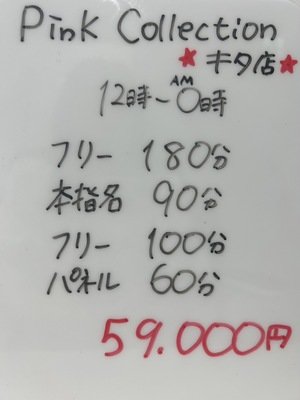 Pink Collection
★キタ店★
12時〜AM0時
フリー 180分
本指名 90分
フリー 100分
パネル 60分
59.000円